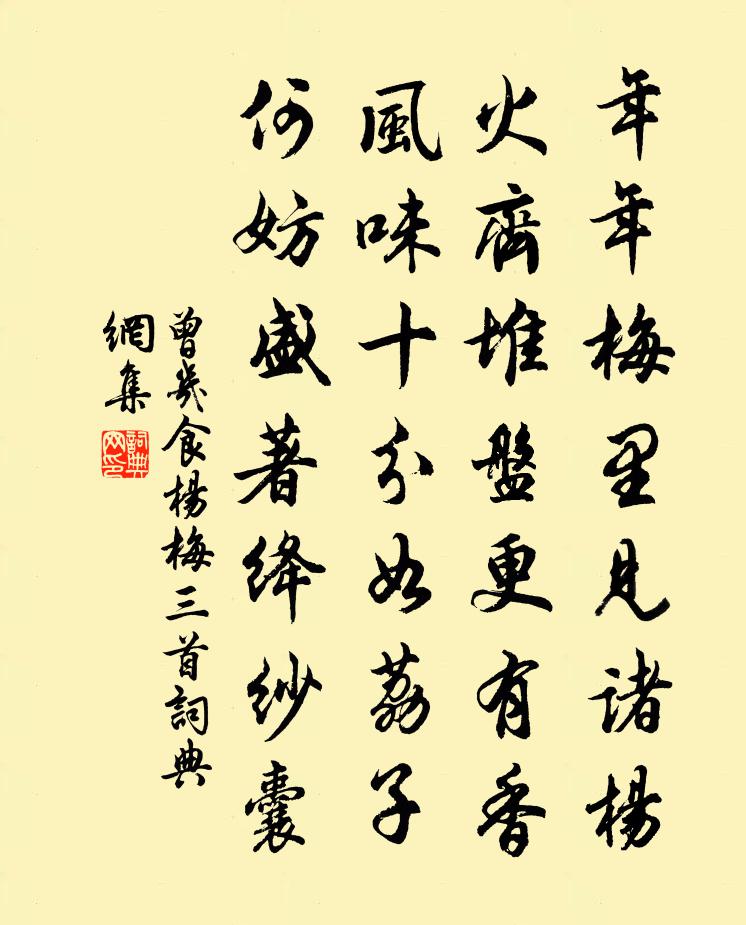 年年梅里見諸楊
火齊堆盤更有香
風味十分如荔子
何妨盛著絳紗囊
曾幾食楊梅三首詞典
網集
詞典網印